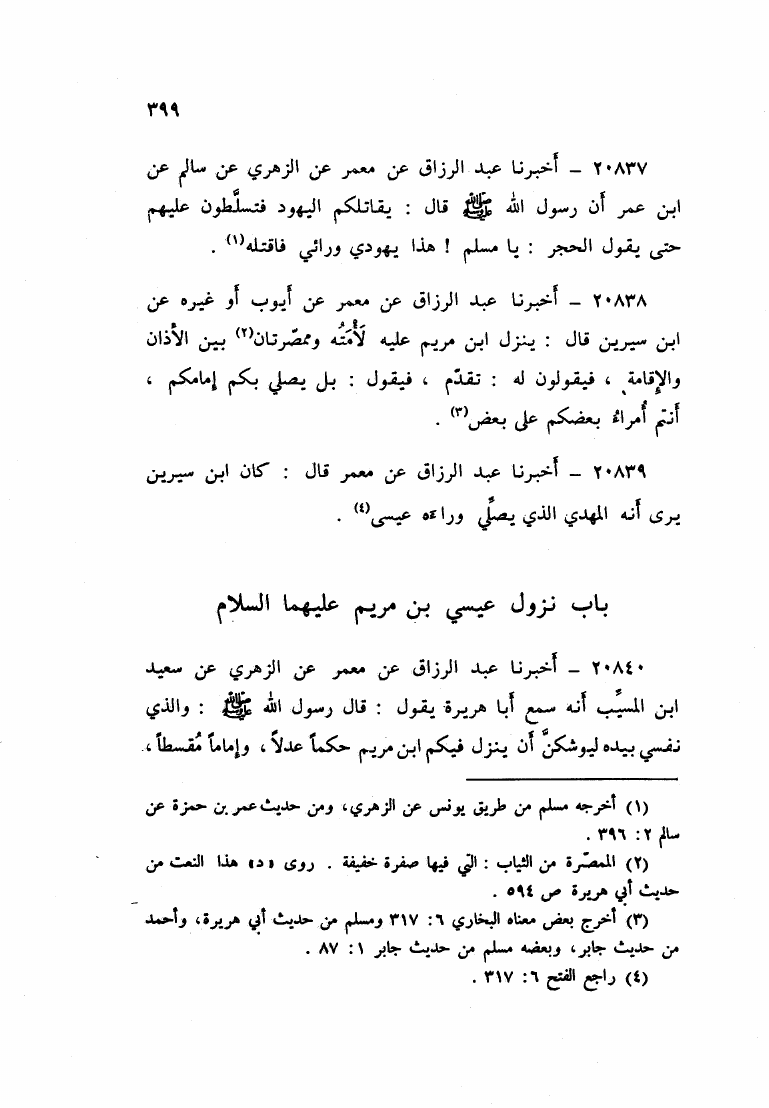 ٣٩٩
٢٠٨٣٧ – أخبرنا عبد الرزاق عن معمر عن الزهري عن سالم عن
ابن عمر أن رسول الله ﷺ قال : يقاتلكم اليهود فتسلَّطون عليهم
حتى يقول الحجر : يا مسلم ! هذا يهودي ورائي فاقتله(١) .
٢٠٨٣٨ – أخبرنا عبد الرزاق عن معمر عن أيوب أو غيره عن
ابن سيرين قال : ينزل ابن مريم عليه لَأْمَتُه وممصّرتان(٢) بين الأذان
والإقامة ، فيقولون له : تقدّم ، فيقول : بل يصلي بكم إمامكم ،
أنتم أُمراءُ بعضكم على بعض(٣) .
٢٠٨٣٩ – أخبرنا عبد الرزاق عن معمر قال : كان ابن سيرين
يرى أنه المهدي الذي يصلِّي وراءه عيسى(٤) .
باب نزول عيسي بن مريم عليهما السلام
٢٠٨٤٠ – أخبرنا عبد الرزاق عن معمر عن الزهري عن سعيد
ابن المسيَّب أنه سمع أبا هريرة يقول : قال رسول الله ﷺ : والذي
نفسي بيده ليوشكنَّ أن ينزل فيكم ابن مريم حكماً عدلاً ، وإماماً مُقسطاً ،
(١) أخرجه مسلم من طريق يونس عن الزهري، ومن حديث عمر بن حمزة عن
سالم ٢: ٣٩٦ .
(٢) الممصّرة من الثياب : التي فيها صفرة خفيفة . روى «د» هذا النعت من
حديث أبي هريرة ص ٥٩٤ .
(٣) أخرج بعض معناه البخاري ٦: ٣١٧ ومسلم من حديث أبي هريرة، وأحمد
من حديث جابر، وبعضه مسلم من حديث جابر ١: ٨٧ .
(٤) راجع الفتح ٦: ٣١٧ .